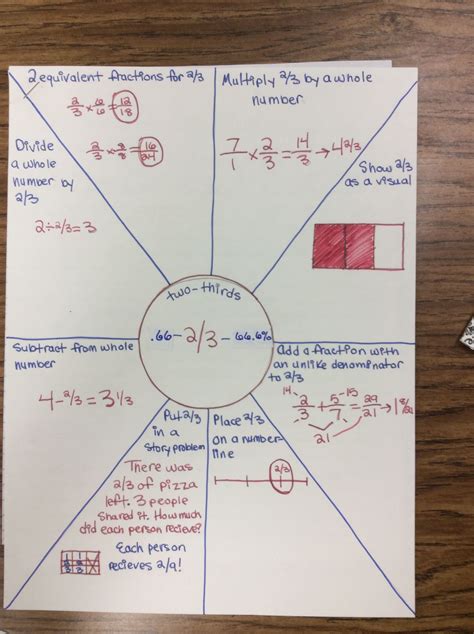 2 equivalent fractions for 2/3
2/3 × 6/6 = 12/18
2/3 × 8/8 = 16/24
Multiply 2/3 by a whole
number
7/1 × 2/3 = 14/3 → 4 2/3
Divide
a whole
number by
2/3
2 ÷ 2/3 = 3
Show 2/3
as a visual
two-thirds
.66 - 2/3 - 66.6%
Subtract from whole
number
4 - 2/3 = 3 1/3
Add a fraction with
an unlike denominator
to 2/3
14 15
2/3 + 5/7 = 29/21 → 1 8/21
21
Put 2/3
in a
story problem
There was
2/3 of pizza
left. 3 people
shared it. How much
did each person recieve?
Each person
recieves 2/9!
1 1
3 3
Place 2/3
on a number-
line
2/3